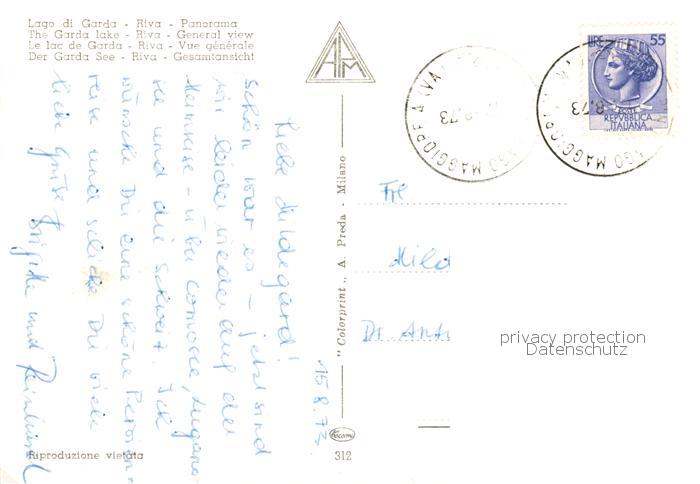 Lago di Garda - Riva - Panorama
The Garda lake - Riva - General view
Le lac de Garda - Riva - Vue générale
Der Garda See - Riva - Gesamtansicht
APM
LIRE 55
POSTE
REPVBBLICA
ITALIANA
LAGO MAGGIORE
8.73
LAGO MAGGIORE
8.73
15.8.73
Liebe Hildegard!
Schön war es – jetzt sind
wir leider wieder auf der
Heimreise – über Comosee, Lugano-
see und die Schweiz. Ich
wünsche Dir eine schöne
reise und schicke Dir viele
liebe Grüße Brigitte und Reinhard
Frl
Hild
Dr. Ant
"Colorprint" A. Preda - Milano
privacy protection
Datenschutz
Focami
312
Riproduzione vietata